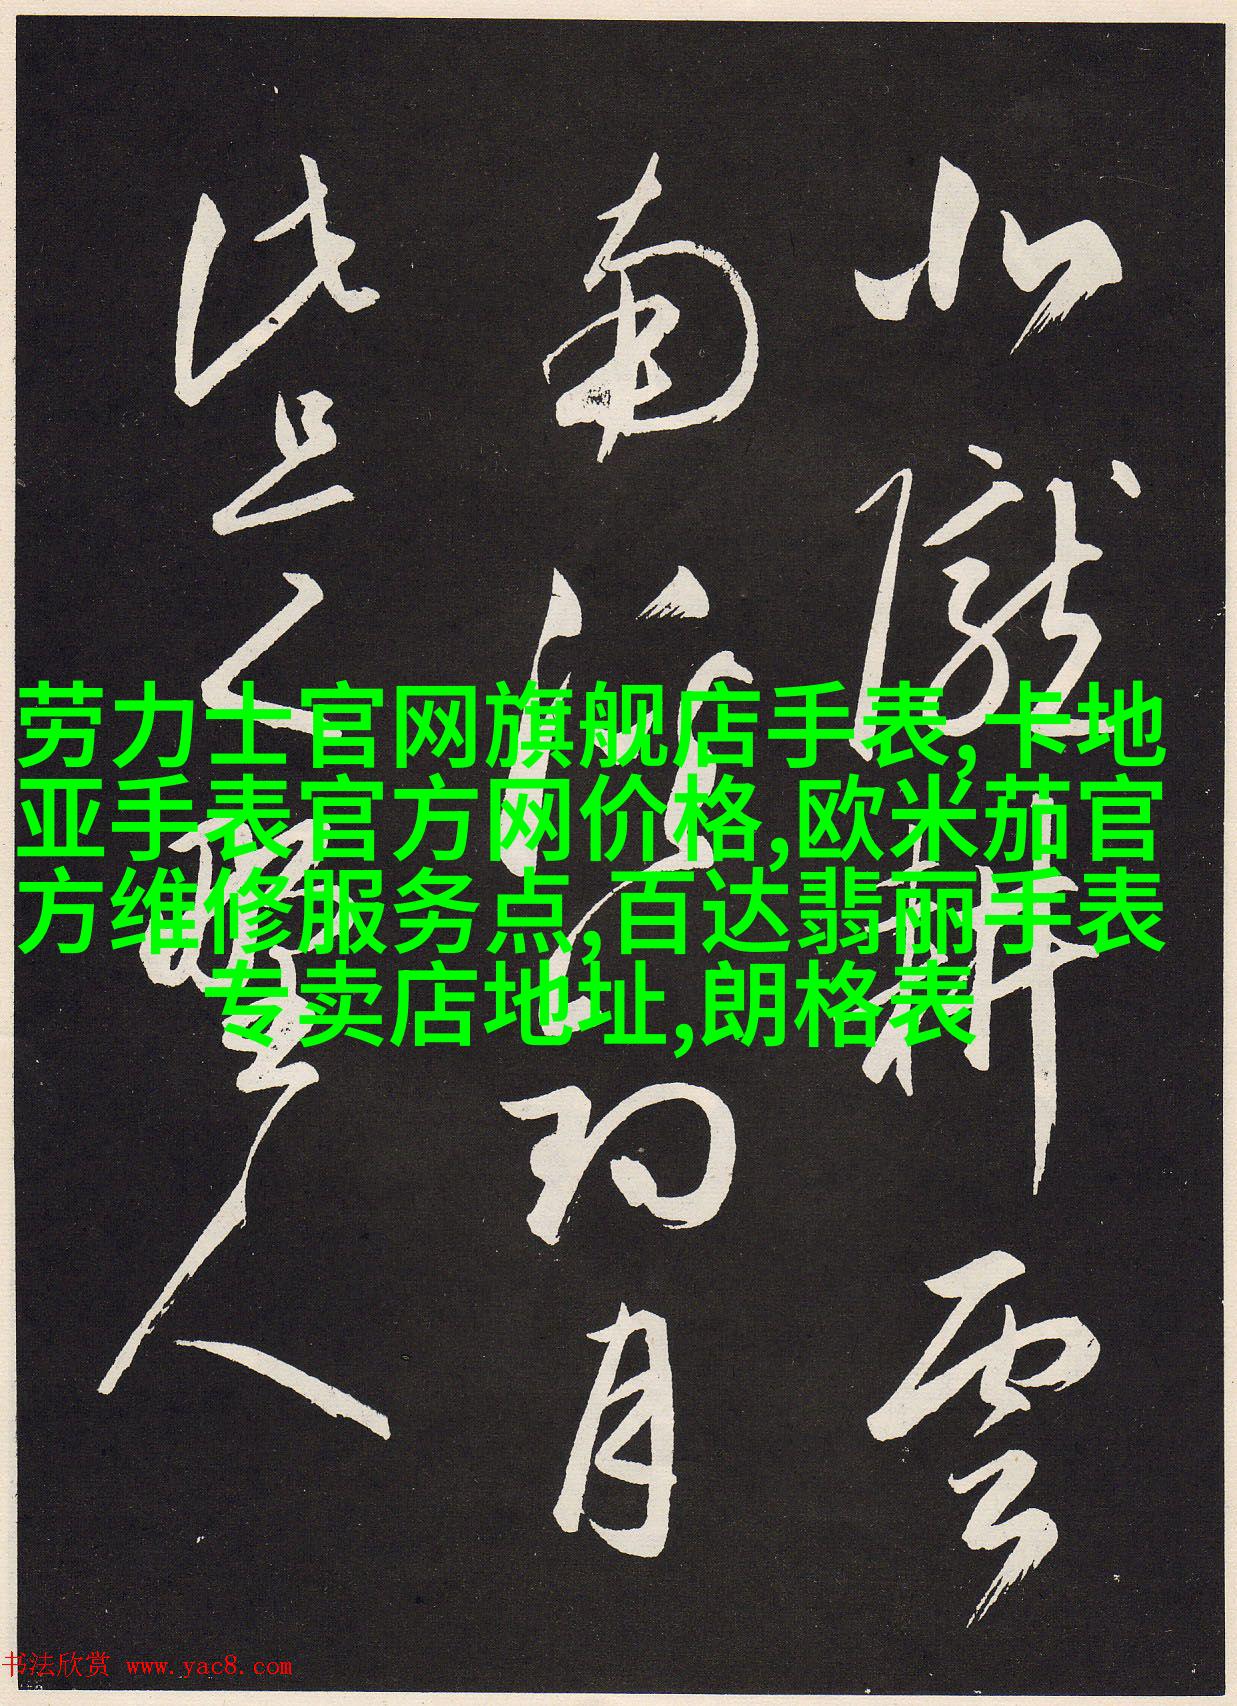 北隴耕雲
南溪釣月
此是野人
劳力士官网旗舰店手表,卡地
亚手表官方网价格,欧米茄官
方维修服务点,百达翡丽手表
专卖店地址,朗格表
书法欣赏 www.yac8.com